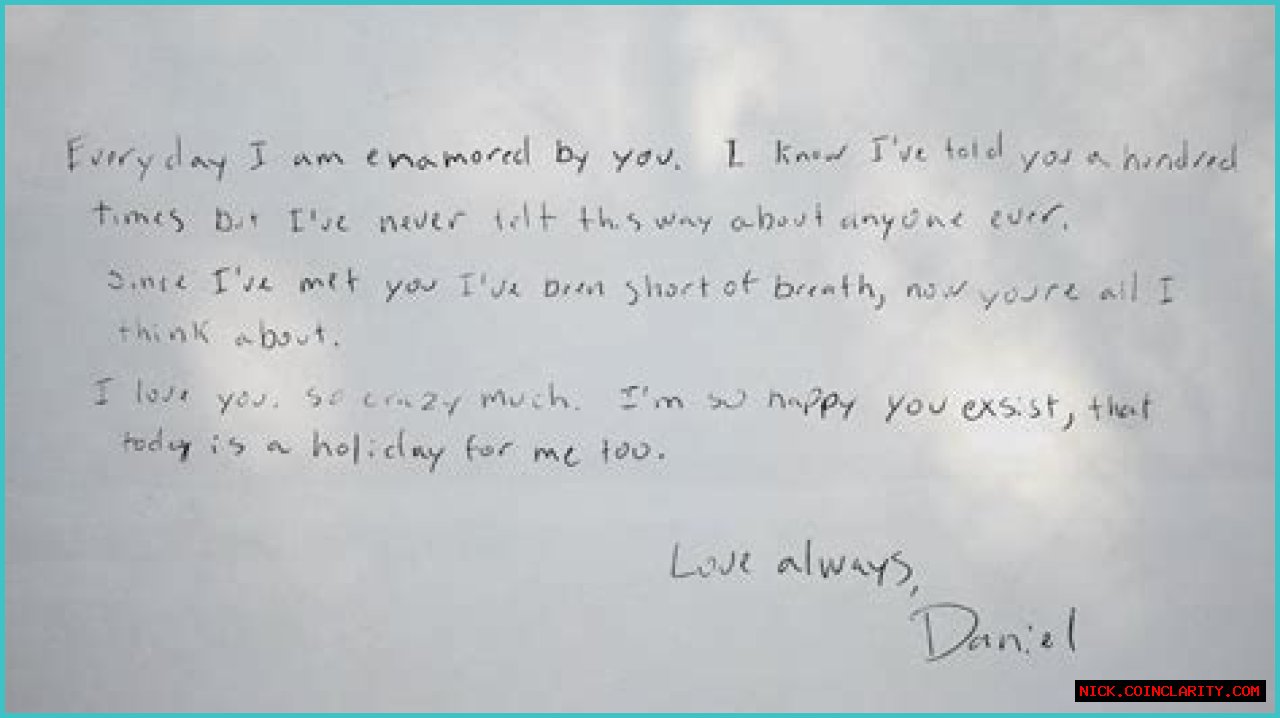 Everyday I am enamored by you. I know I've told you a hundred
times but I've never felt this way about anyone ever.
Since I've met you I've been short of breath, now you're all I
think about.
I love you. so crazy much. I'm so happy you exsist, that
today is a holiday for me too.
Love always,
Daniel
NICK.COINCLARITY.COM